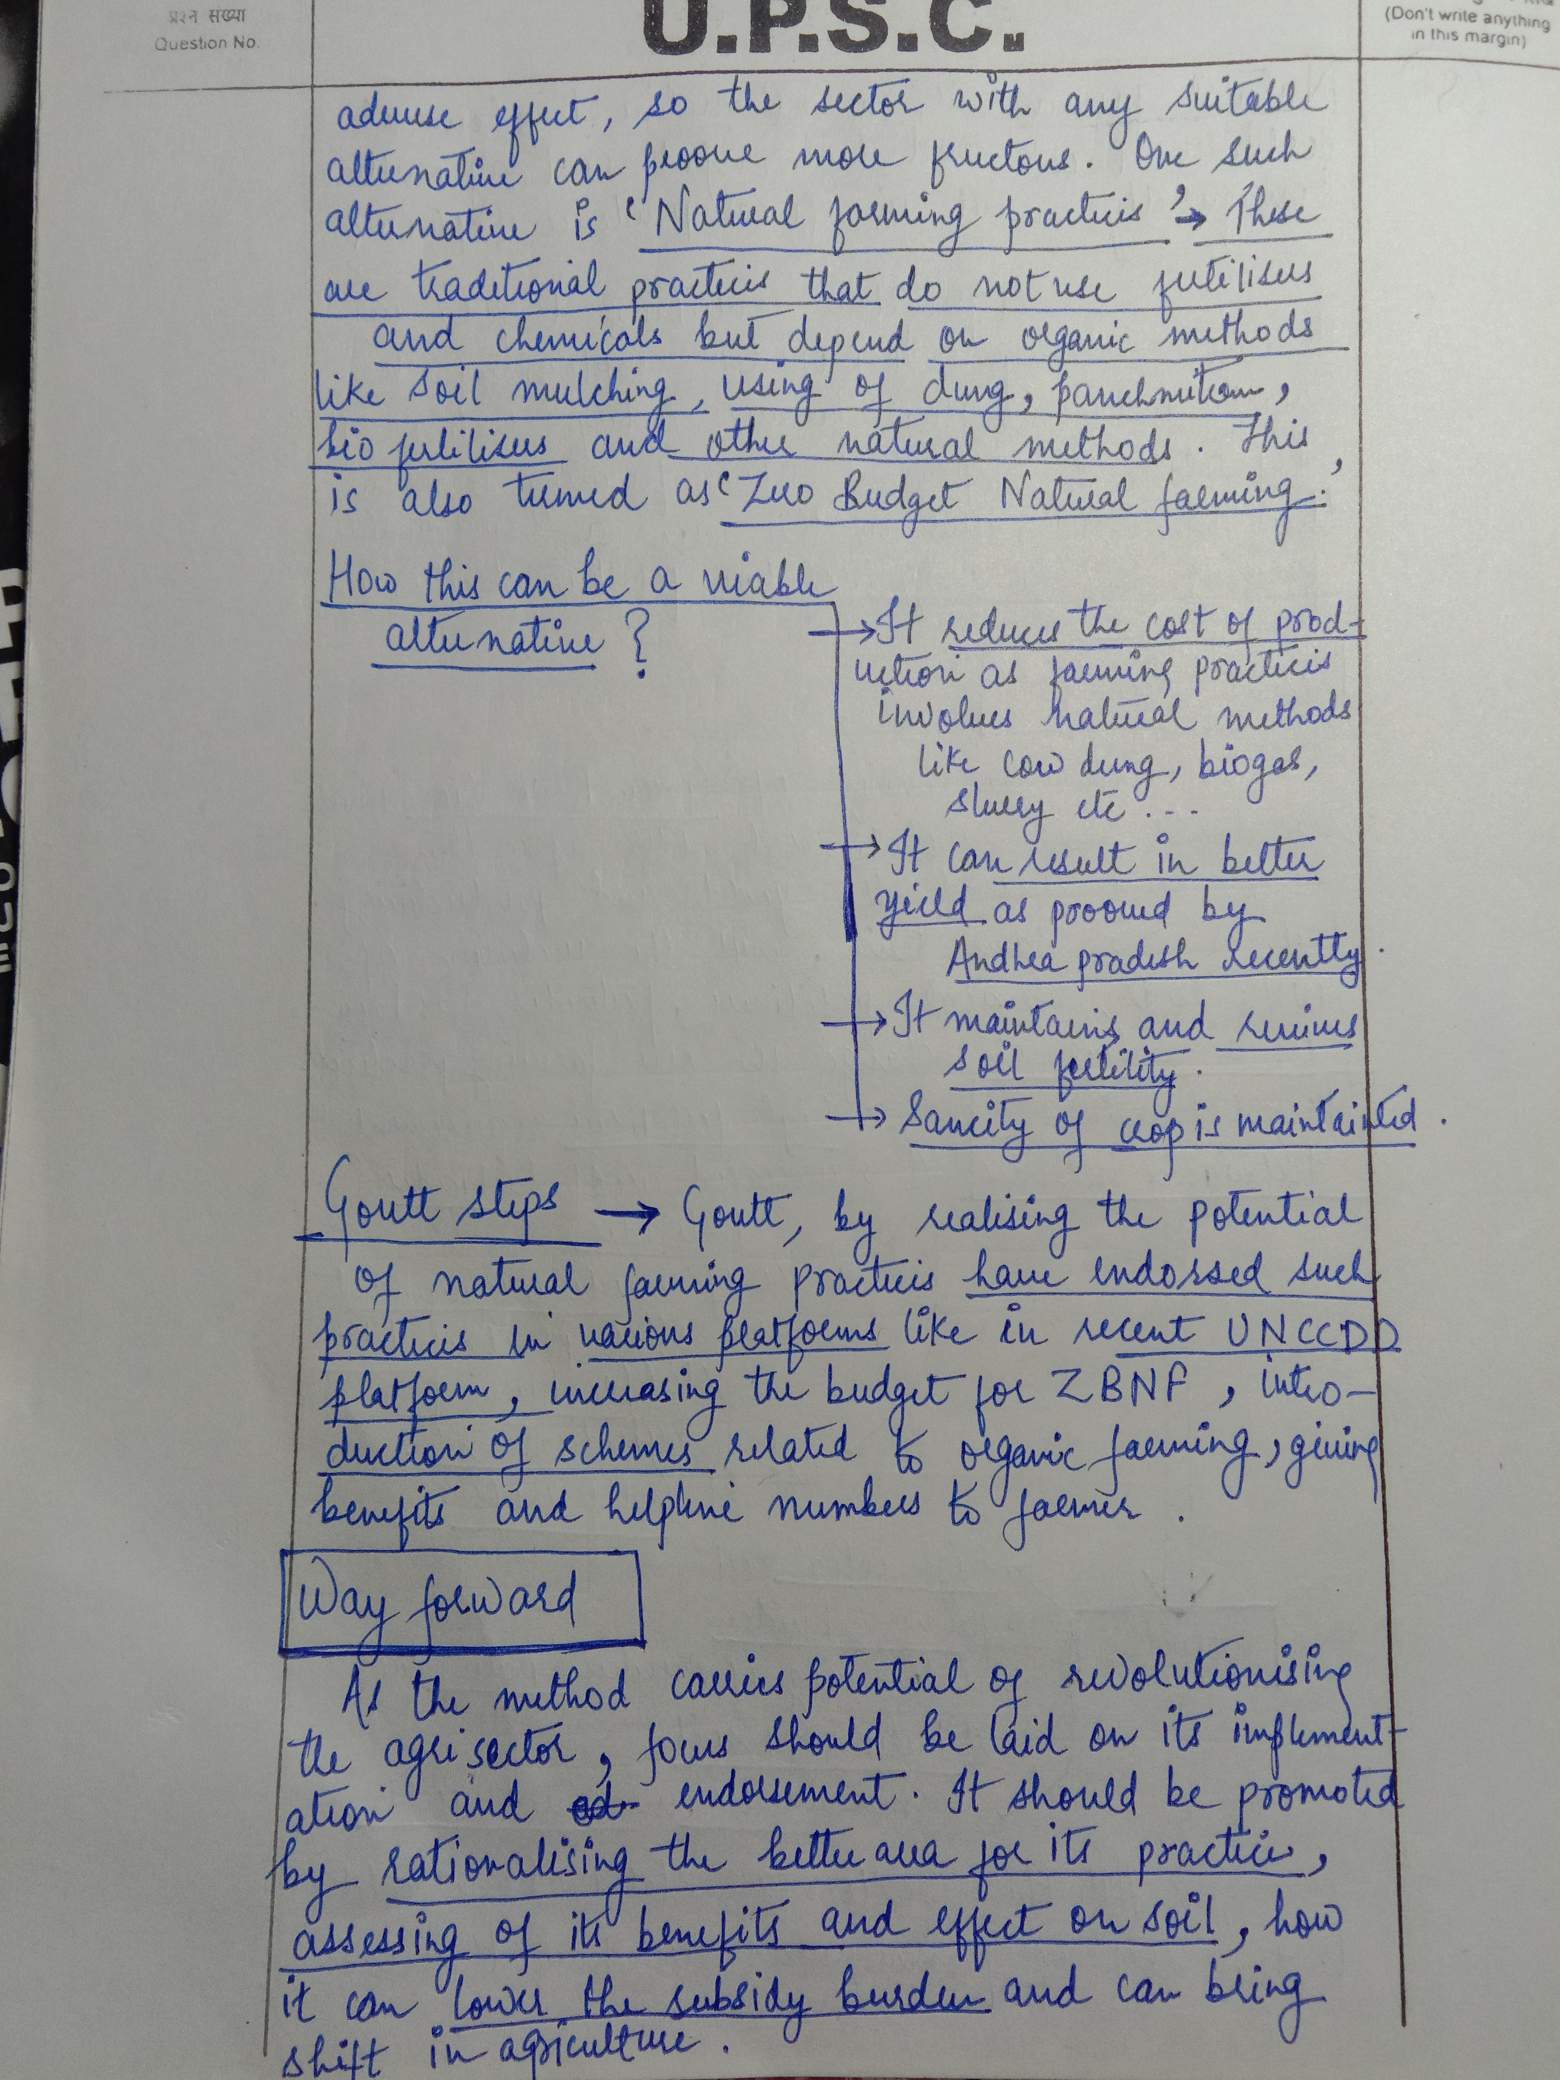 प्रश्न संख्या
Question No.
U.P.S.C.
(Don't write anything
in this margin)
adverse effect, so the sector with any suitable
alternative can proove more fructous. One such
alternative is 'Natural farming practicis' → These
are traditional practicis that do not use fertilisers
and chemicals but depend on organic methods
like soil mulching, using of dung, panchmitram,
bio fertilisers and other natural methods. This
is also termed as 'Zero Budget Natural farming.'
How this can be a viable
alternative ?
→ It reduces the cost of prod-
uction as farming practicis
involves natural methods
like cow dung, biogas,
slurry etc ...
→ It can result in better
yield as prooved by
Andhra pradesh recently.
→ It maintains and revives
soil fertility.
→ Sancity of crop is maintainted.
Govtt steps → Govtt, by realising the potential
of natural farming practicis have endorsed such
practicis in various platforms like in recent UNCCDD
platform, increasing the budget for ZBNF, intro-
duction of schemes related to organic farming, giving
benefits and helpline numbers to farmer.
Way forward
As the method carries potential of revolutionising
the agri sector, focus should be laid on its implement-
ation and endorsement. It should be promoted
by rationalising the better area for its practice,
assessing of its benefits and effect on soil, how
it can lower the subsidy burden and can bring
shift in agriculture.